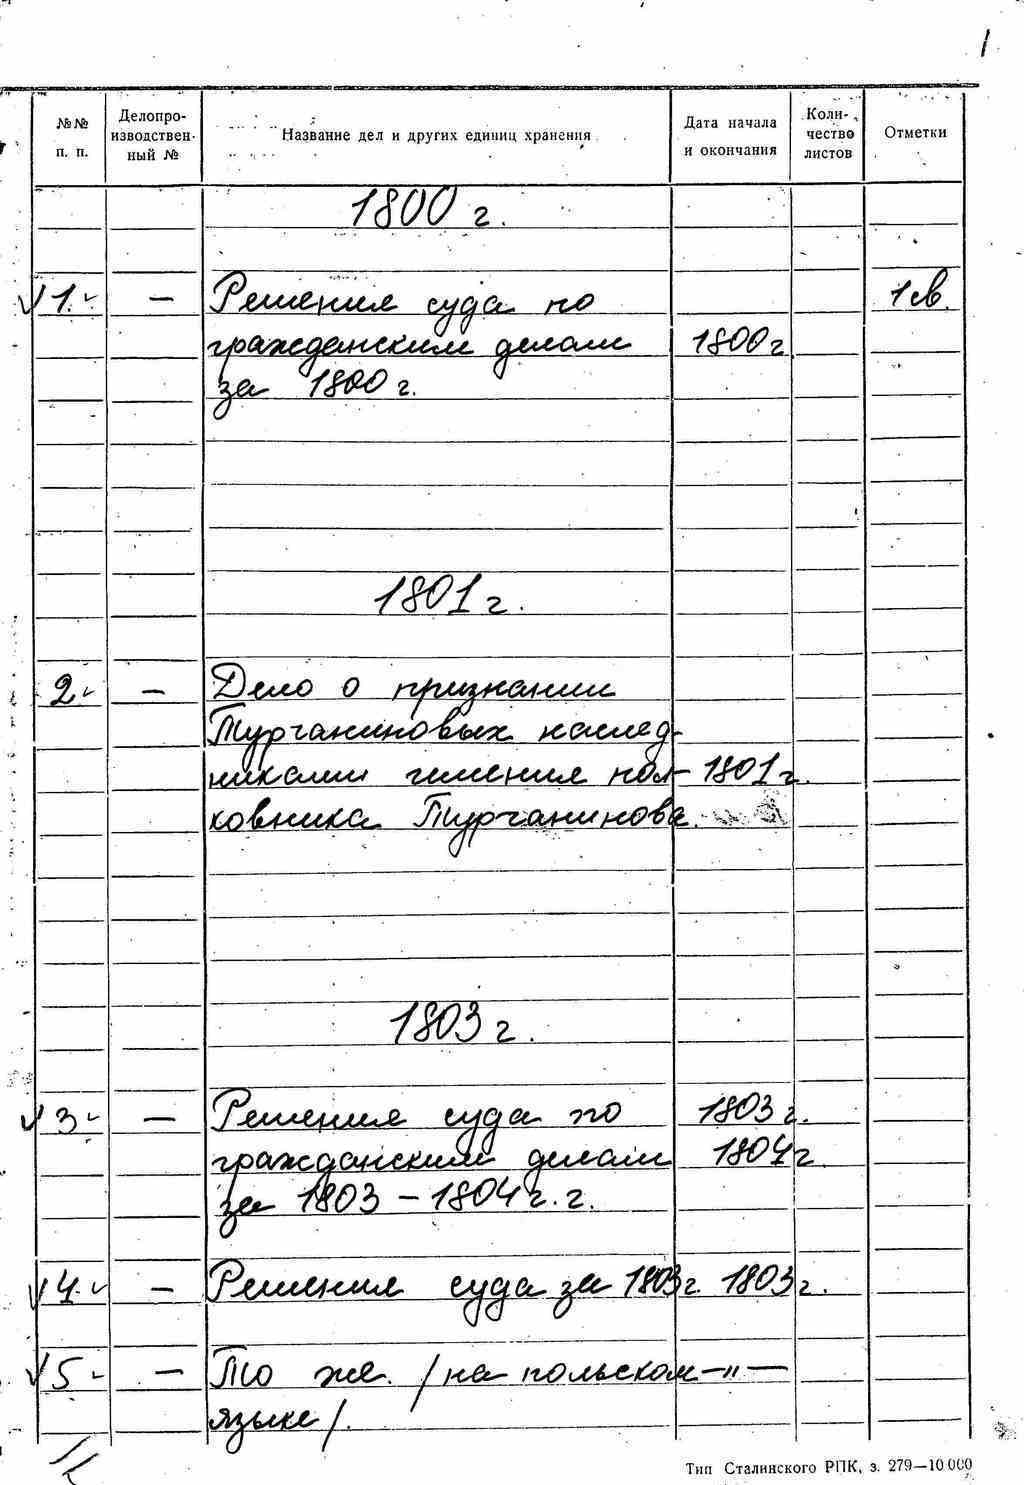 1
№№ п. п.
Делопро-
изводствен-
ный №
Название дел и других единиц хранения
Дата начала
и окончания
Коли-
чество
листов
Отметки
1800 г.
1. — Решения суда по 1 св.
гражданским делам 1800 г
за 1800 г.
1801 г.
2 — Дело о признании
Турчаниновых наслед-
никами имения пол- 1801 г.
ковника Турчанинова.
1803 г.
3 — Решения суда по 1803 г.
гражданским делам 1804 г
за 1803 – 1804 г. г.
4. — Решения суда за 1803 г. 1803 г.
5 — То же. /на польском —"—
языке/.
Тип Сталинского РПК, з. 279—10.000